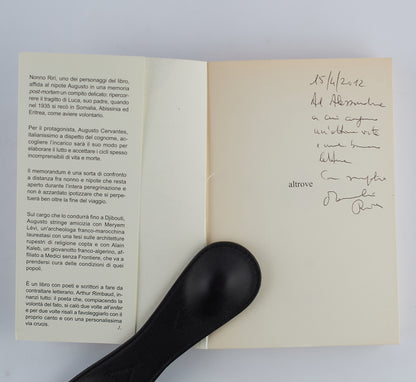 Nonno Riri, uno dei personaggi del libro,
affida al nipote Augusto in una memoria
post-mortem un compito delicato: ripercor-
rere il tragitto di Luca, suo padre, quando
nel 1935 si recò in Somalia. Abissinia ed
Eritrea, come aviere volontario.
Per il protagonista, Augusto Cervantes,
italianissimo a dispetto del cognome, ac-
cogliere l'incarico sarà il suo modo per
elaborare il lutto e accettare i cicli spesso
incomprensibili di vita e morte.
Il memorandum è una sorta di confronto
a distanza fra nonno e nipote che resta
aperto durante l'intera peregrinazione e
non è azzardato ipotizzare che si perpe-
tuerà ben oltre la fine del viaggio.
Sul cargo che lo condurrà fino a Djibouti,
Augusto stringe amicizia con Meryem
Lévi, un'archeologa franco-marocchina
laureatasi con una tesi sulle architetture
rupestri di religione copta e con Alain
Kaleb, un giovanotto franco-algerino, af-
filiato a Medici senza Frontiere, che va a
prendersi cura delle condizioni di quei
popoli.
È un libro con poeti e scrittori a fare da
contraltare letterario. Arthur Rimbaud, in-
nanzi tutto: il poeta che, compiacendo la
volontà del fato, si calò due volte all'enfer
e per due volte risalì a favoleggiarlo con il
proprio canto e con una personalissima
via crucis.
J.
15/4/2012
Ad Alessandra
a cui auguro
e una buona
altrove